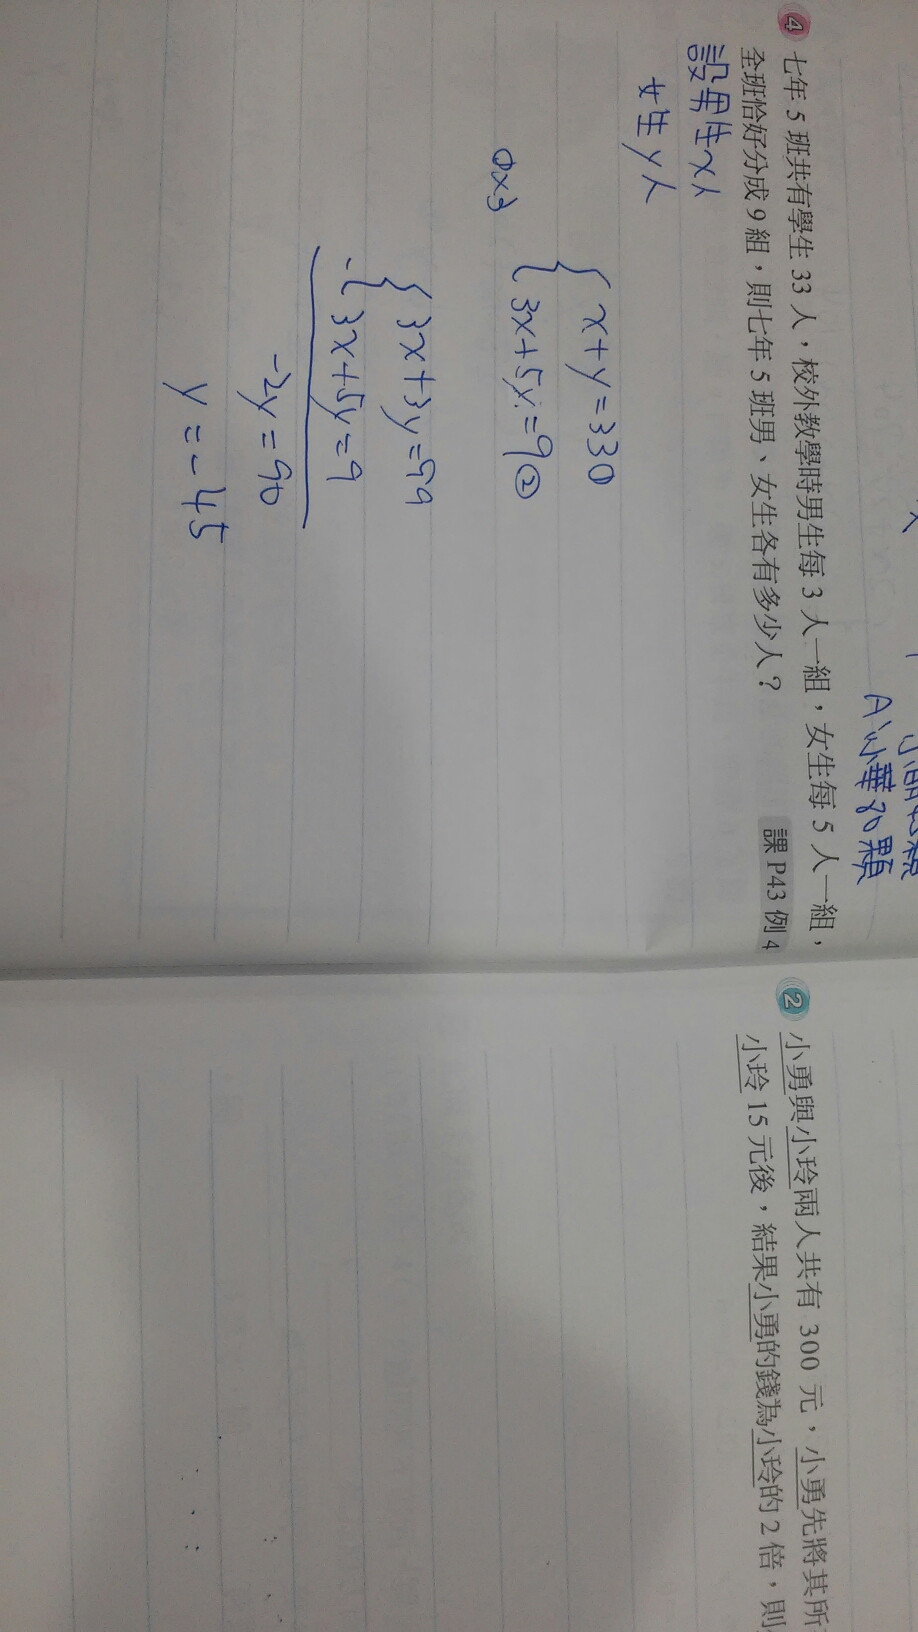 小華80顆
4 七年 5 班共有學生 33 人，校外教學時男生每 3 人一組，女生每 5 人一組，
全班恰好分成 9 組，則七年 5 班男、女生各有多少人？
課 P43 例 4
設男生x人
女生y人
{ x+y=33①
{ 3x+5y=9②
①×3
{ 3x+3y=99
-{ 3x+5y=9
-2y=90
y=-45
2 小勇與小玲兩人共有 300 元，小勇先將其所
小玲 15 元後，結果小勇的錢為小玲的 2 倍，則